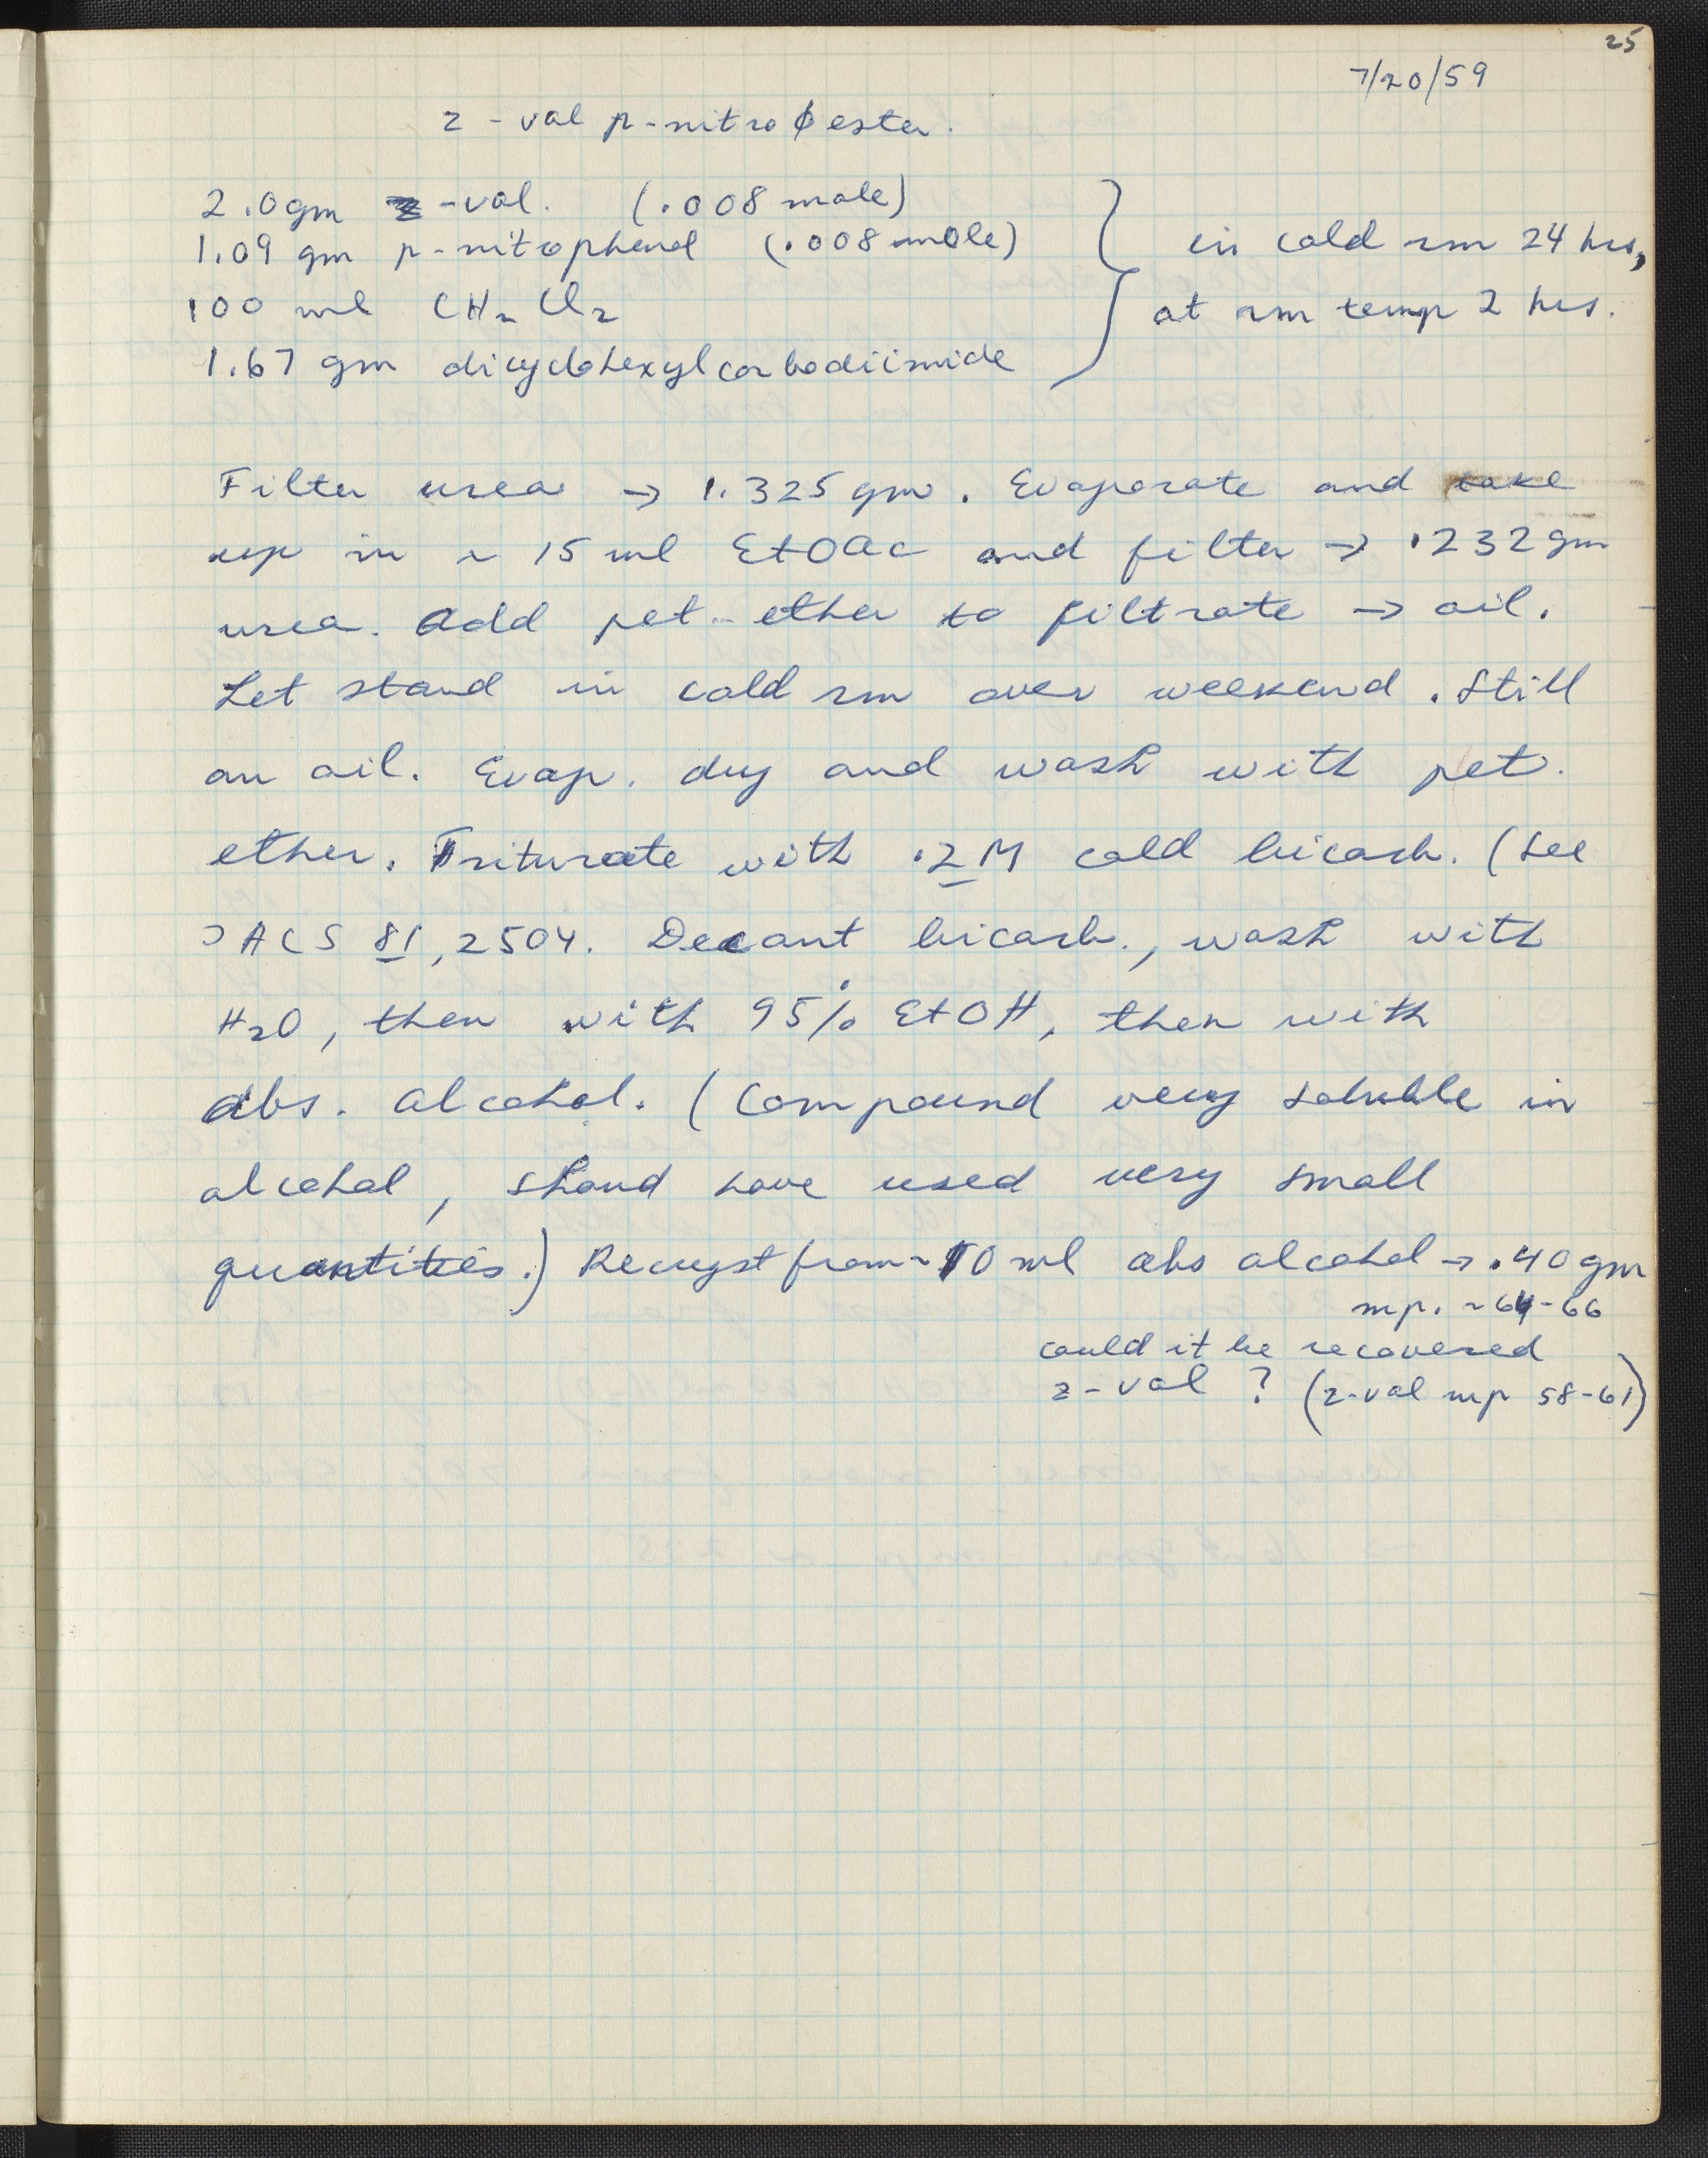 25
7/20/59
z-val p-nitro ϕ ester.
2.0 gm z-val. (.008 mole)
1.09 gm p-nitrophenol (.008 mole)
100 ml CH₂Cl₂
1.67 gm dicyclohexylcarbodiimide
in cold rm 24 hrs,
at rm temp 2 hrs.
Filter urea → 1.325 gm. Evaporate and take
up in ~ 15 ml EtOAc and filter → .232 gm
urea. Add pet. ether to filtrate → oil.
Let stand in cold rm over weekend. Still
an oil. Evap. dry and wash with pet.
ether. Triturate with .2 M cold bicarb. (See
JACS 81, 2504. Decant bicarb., wash with
H₂O, then with 95% EtOH, then with
abs. alcohol. (Compound very soluble in
alcohol, shoud have used very small
quantities.) Recryst from ~10 ml abs alcohol → .40 gm
mp. ~64-66
could it be recovered
z-val? (z-val mp 58-61)